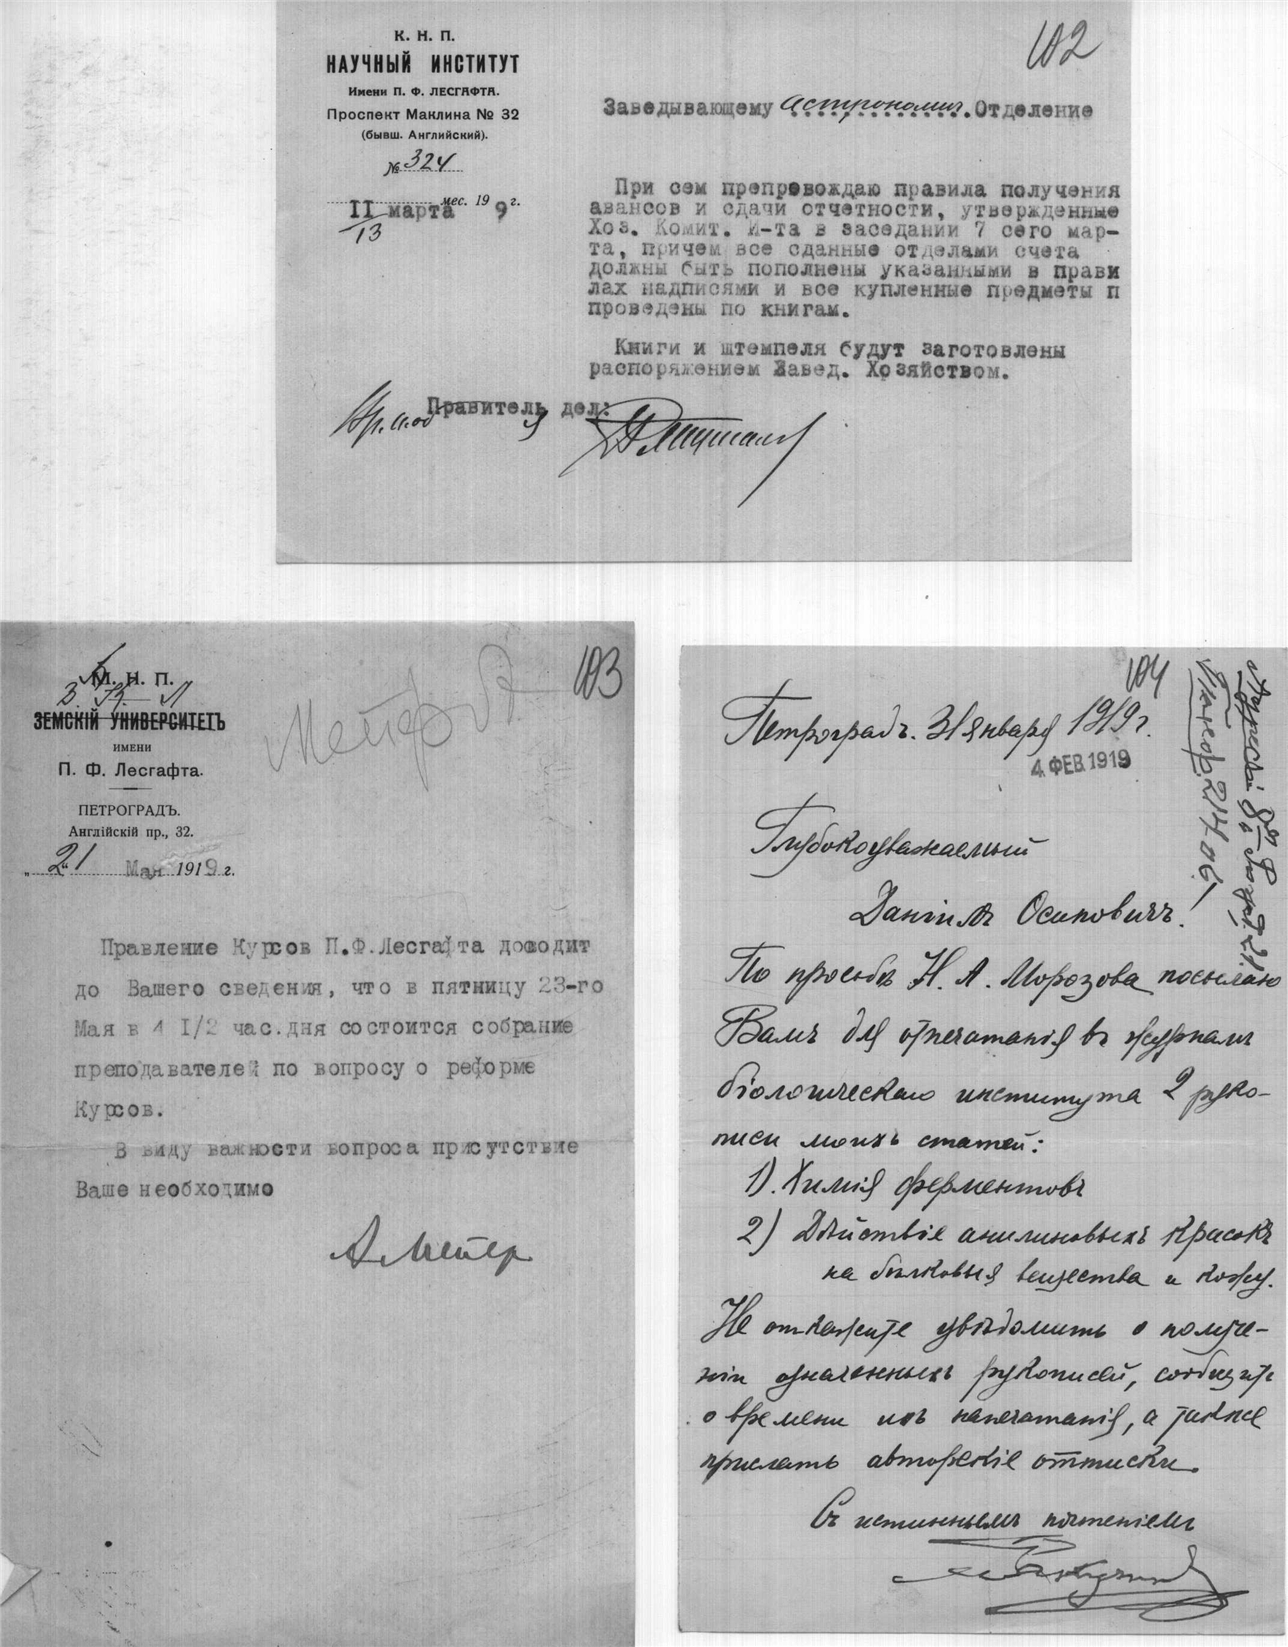 102
К. Н. П.
НАУЧНЫЙ ИНСТИТУТ
Имени П. Ф. ЛЕСГАФТА.
Проспект Маклина № 32
(бывш. Английский).
№ 324
II/13 марта мес. 19 9 г.
Заведывающему Астрономич. Отделение
При сем препровождаю правила получения
авансов и сдачи отчетности, утвержденные
Хоз. Комит. И-та в заседании 7 сего мар-
та, причем все сданные отделами счета
должны быть пополнены указанными в прави
лах надписями и все купленные предметы п
проведены по книгам.
Книги и штемпеля будут заготовлены
распоряжением Завед. Хозяйством.
Правитель дел:
103
М. Н. П.
ЗЕМСКІЙ УНИВЕРСИТЕТЪ
ИМЕНИ
П. Ф. Лесгафта.
ПЕТРОГРАДЪ.
Англійскій пр., 32.
„21" Мая 1919 г.
Мейер А.
Правление Курсов П.Ф.Лесгафта доводит
до Вашего сведения, что в пятницу 23-го
Мая в 4 I/2 час.дня состоится собрание
преподавателей по вопросу о реформе
Курсов.
В виду важности вопроса присутствие
Ваше необходимо
А Мейер
104
Петроградъ. 31 января 1919 г.
4 ФЕВ 1919
Глубокоуважаемый
Даніилъ Осиповичъ!
По просьбѣ Н. А. Морозова посылаю
Вамъ для отпечатанія въ журналѣ
біологическаго института 2 руко-
писи моихъ статей:
1). Химія ферментовъ
2) Дѣйствіе анилиновыхъ красокъ
на бѣлковыя вещества и кожу.
Не откажите увѣдомить о получе-
ніи означенныхъ рукописей, сообщить
о времени ихъ напечатанія, а также
прислать авторскіе оттиски.
Съ истиннымъ почтеніемъ